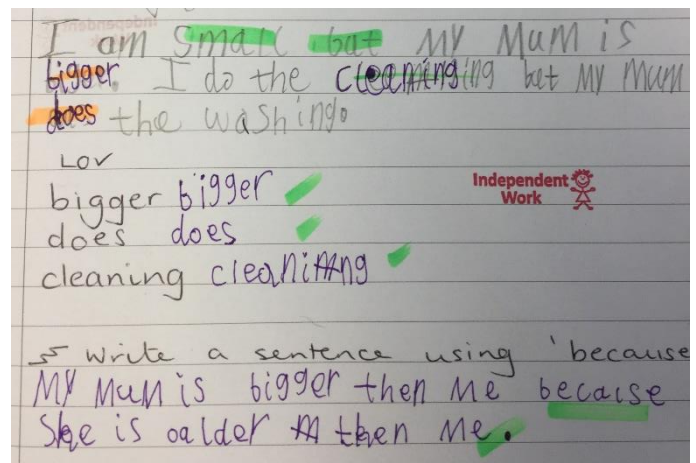 I am small but My Mum is
bigger. I do the cleaning but My Mum
does the washing.
LOV
bigger bigger
does does
cleaning cleaning
Independent
Work
Write a sentence using 'because
My Mum is bigger then Me because
She is oalder then Me.